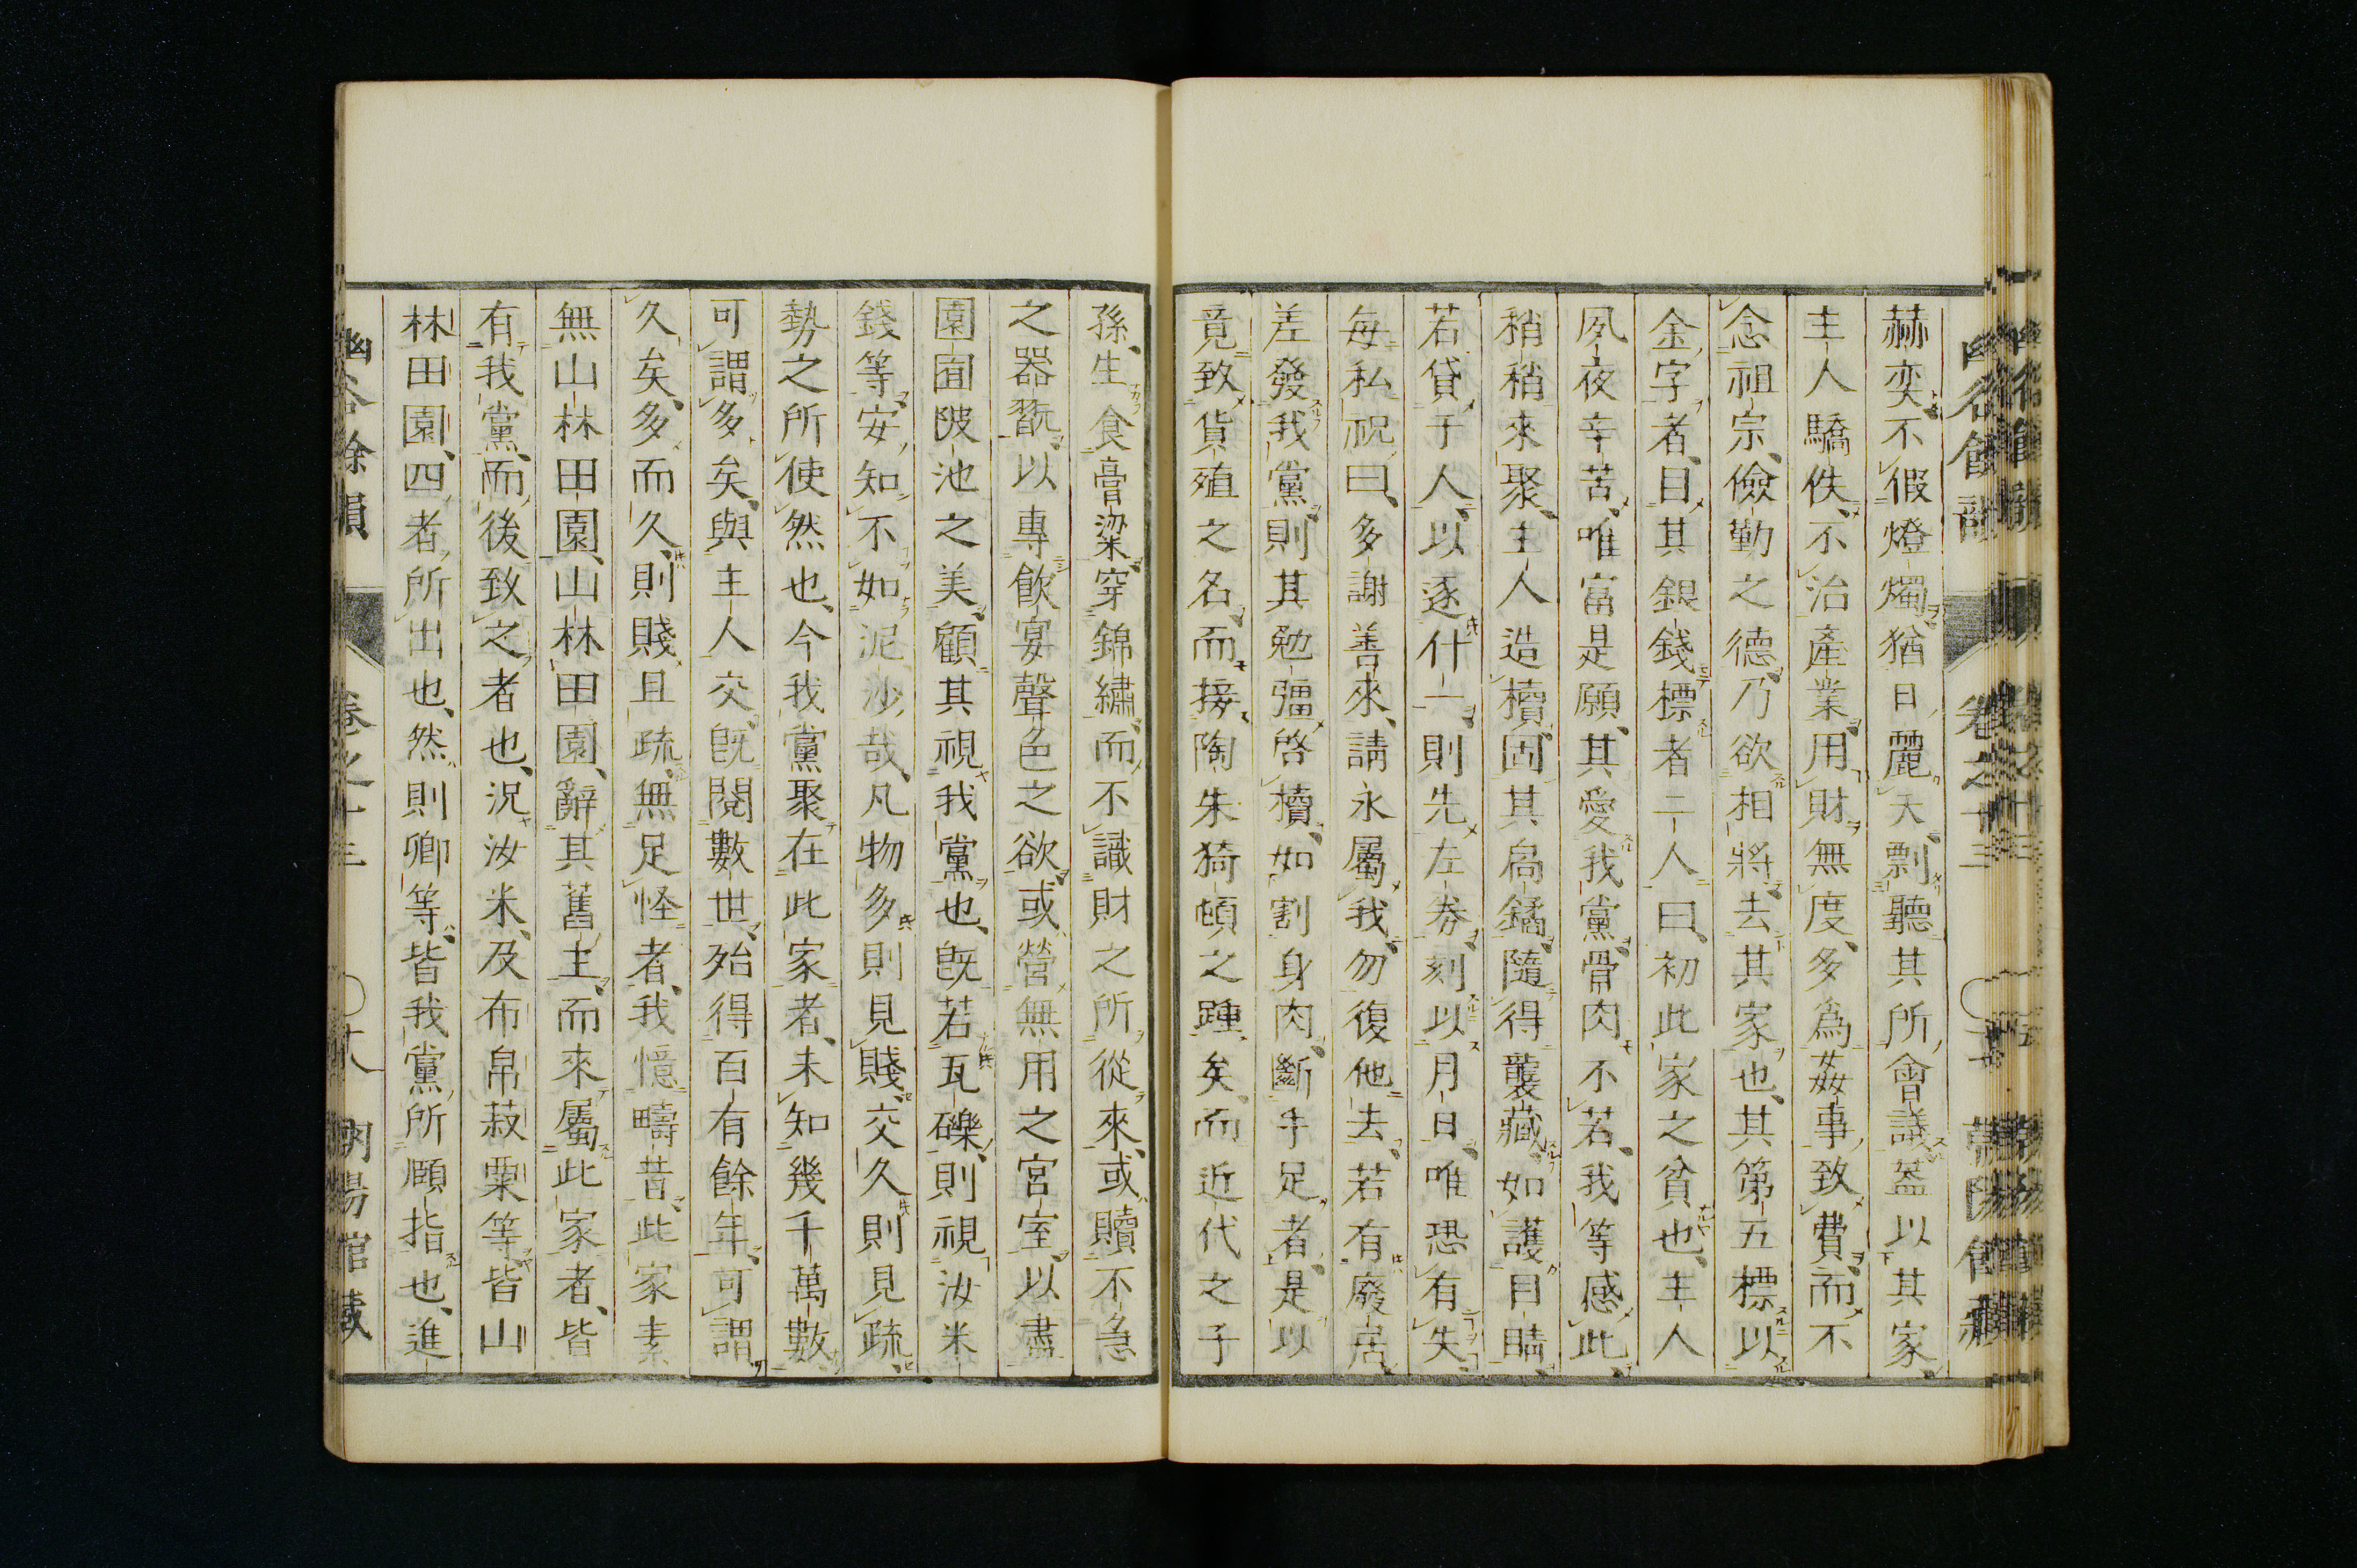 赫奕不假燈燭猶日麗天剽聽其所會議葢以其家
主人驕佚不治產業用財無度多爲姦事致費而不
念祖宗儉勤之德乃欲相將去其家也其第五標以
金字者目其銀錢標者二人曰初此家之貧也主人
夙夜辛苦唯富是願其愛我黨骨肉不若我等感此
稍稍來聚主人造櫝固其扃鐍隨得襲藏如護目睛
若貸于人以逐什一則先左券刻以月日唯恐有失
每私祝曰多謝善來請永屬我勿復他去若有廢居
差發我黨則其勉彊啓櫝如割身肉斷手足者是以
竟致貨殖之名而接陶朱猗頓之踵矣而近代之子
孫生食膏粱穿錦繡而不識財之所從來或贖不急
之器翫以專飲宴聲色之欲或營無用之宮室以盡
園囿陂池之美顧其視我黨也旣若瓦礫則視汝米
錢等安知不如泥沙哉凡物多則見賤交久則見疏
勢之所使然也今我黨聚在此家者未知幾千萬數
可謂多矣與主人交旣閱數世殆得百有餘年可謂
久矣多而久則賤且疏無足怪者我憶疇昔此家素
無山林田園山林田園辭其舊主而來屬此家者皆
有我黨而後致之者也況汝米及布帛菽粟等皆山
林田園四者所出也然則卿等皆我黨所頤指也進
幽谷餘韻 卷之十三 〇十八 朙昜館藏